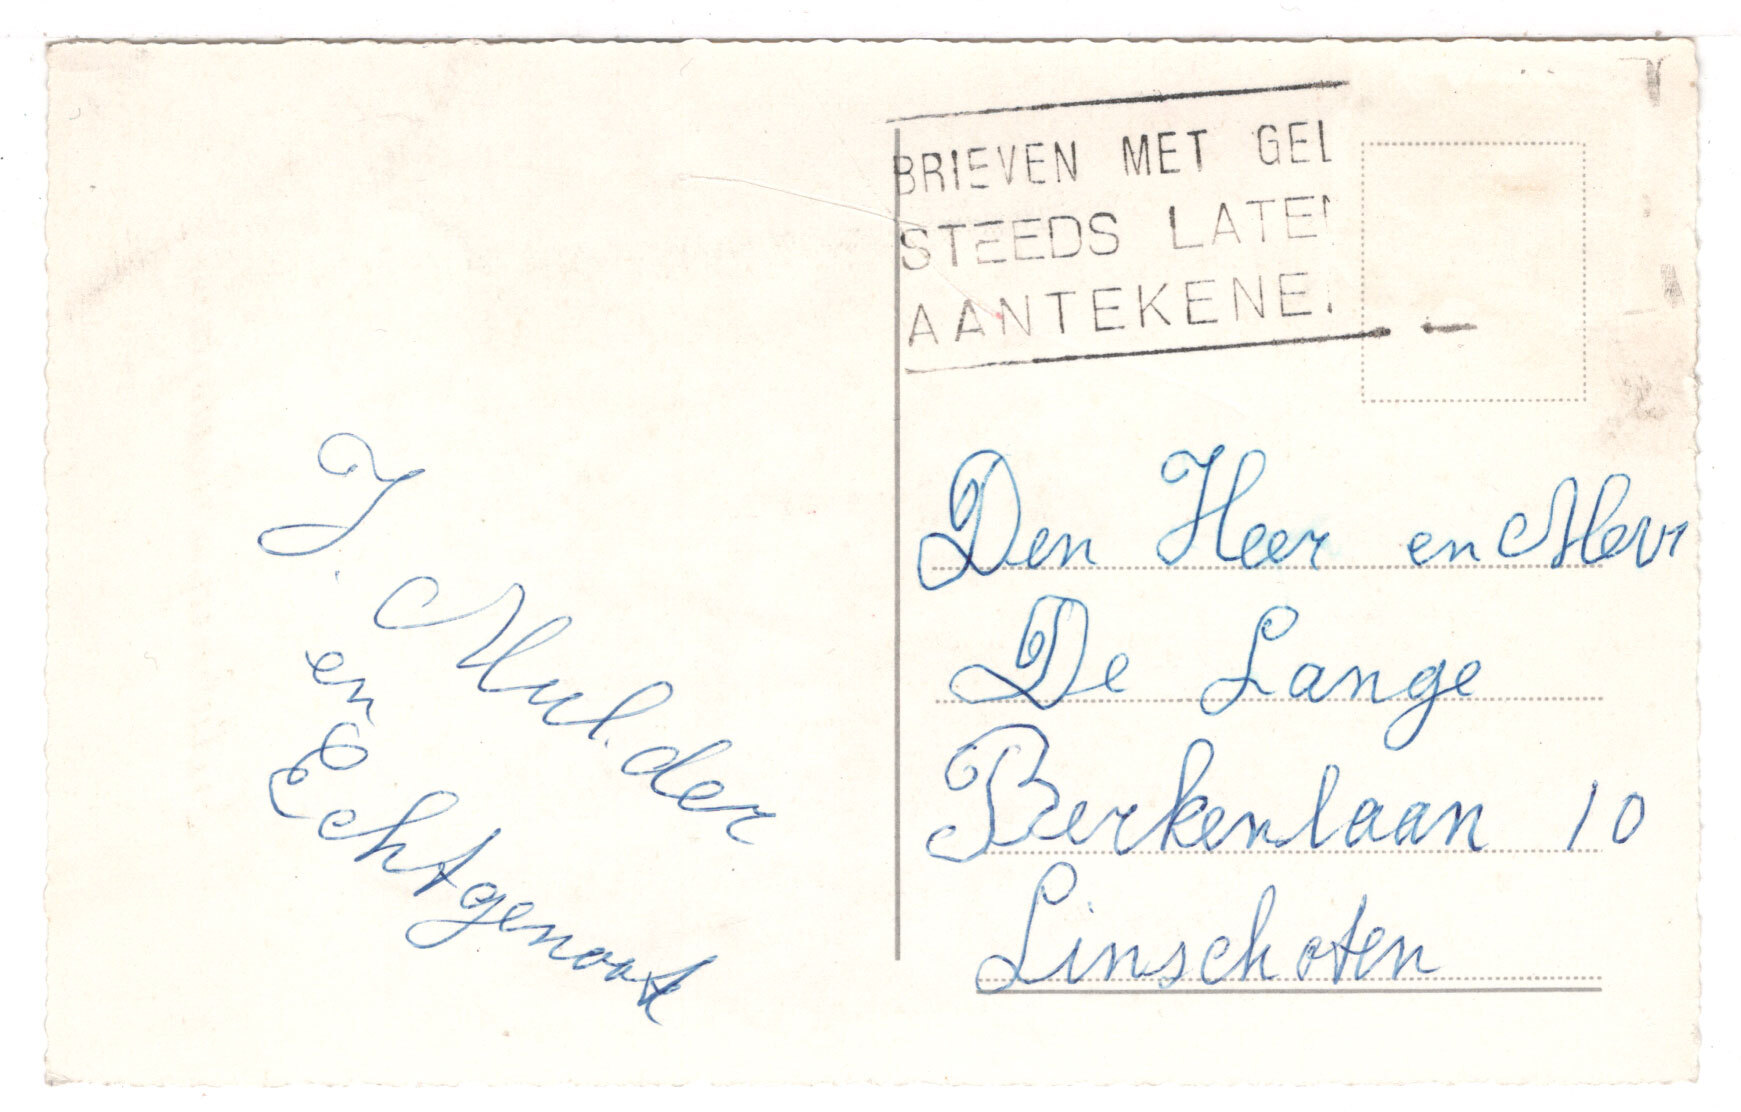 BRIEVEN MET GEL
STEEDS LATEN
AANTEKENE
J. Mulder
en
Echtgenoot
Den Heer en Mevr
De Lange
Berkenlaan 10
Linschoten